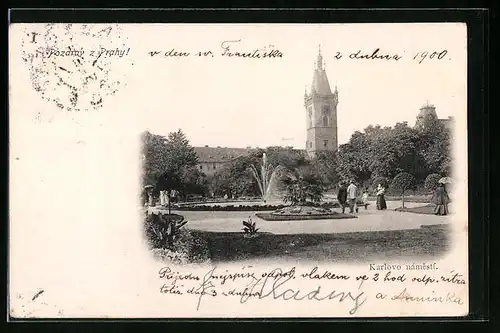 Pozdrav z Prahy!
v den sv. Františka 2 dubna 1900.
Karlovo náměstí.
Přijedu nejspíše odpol. vlakem ve 2 hod odp. zítra
totiž dne 3 dubna
a Maminka